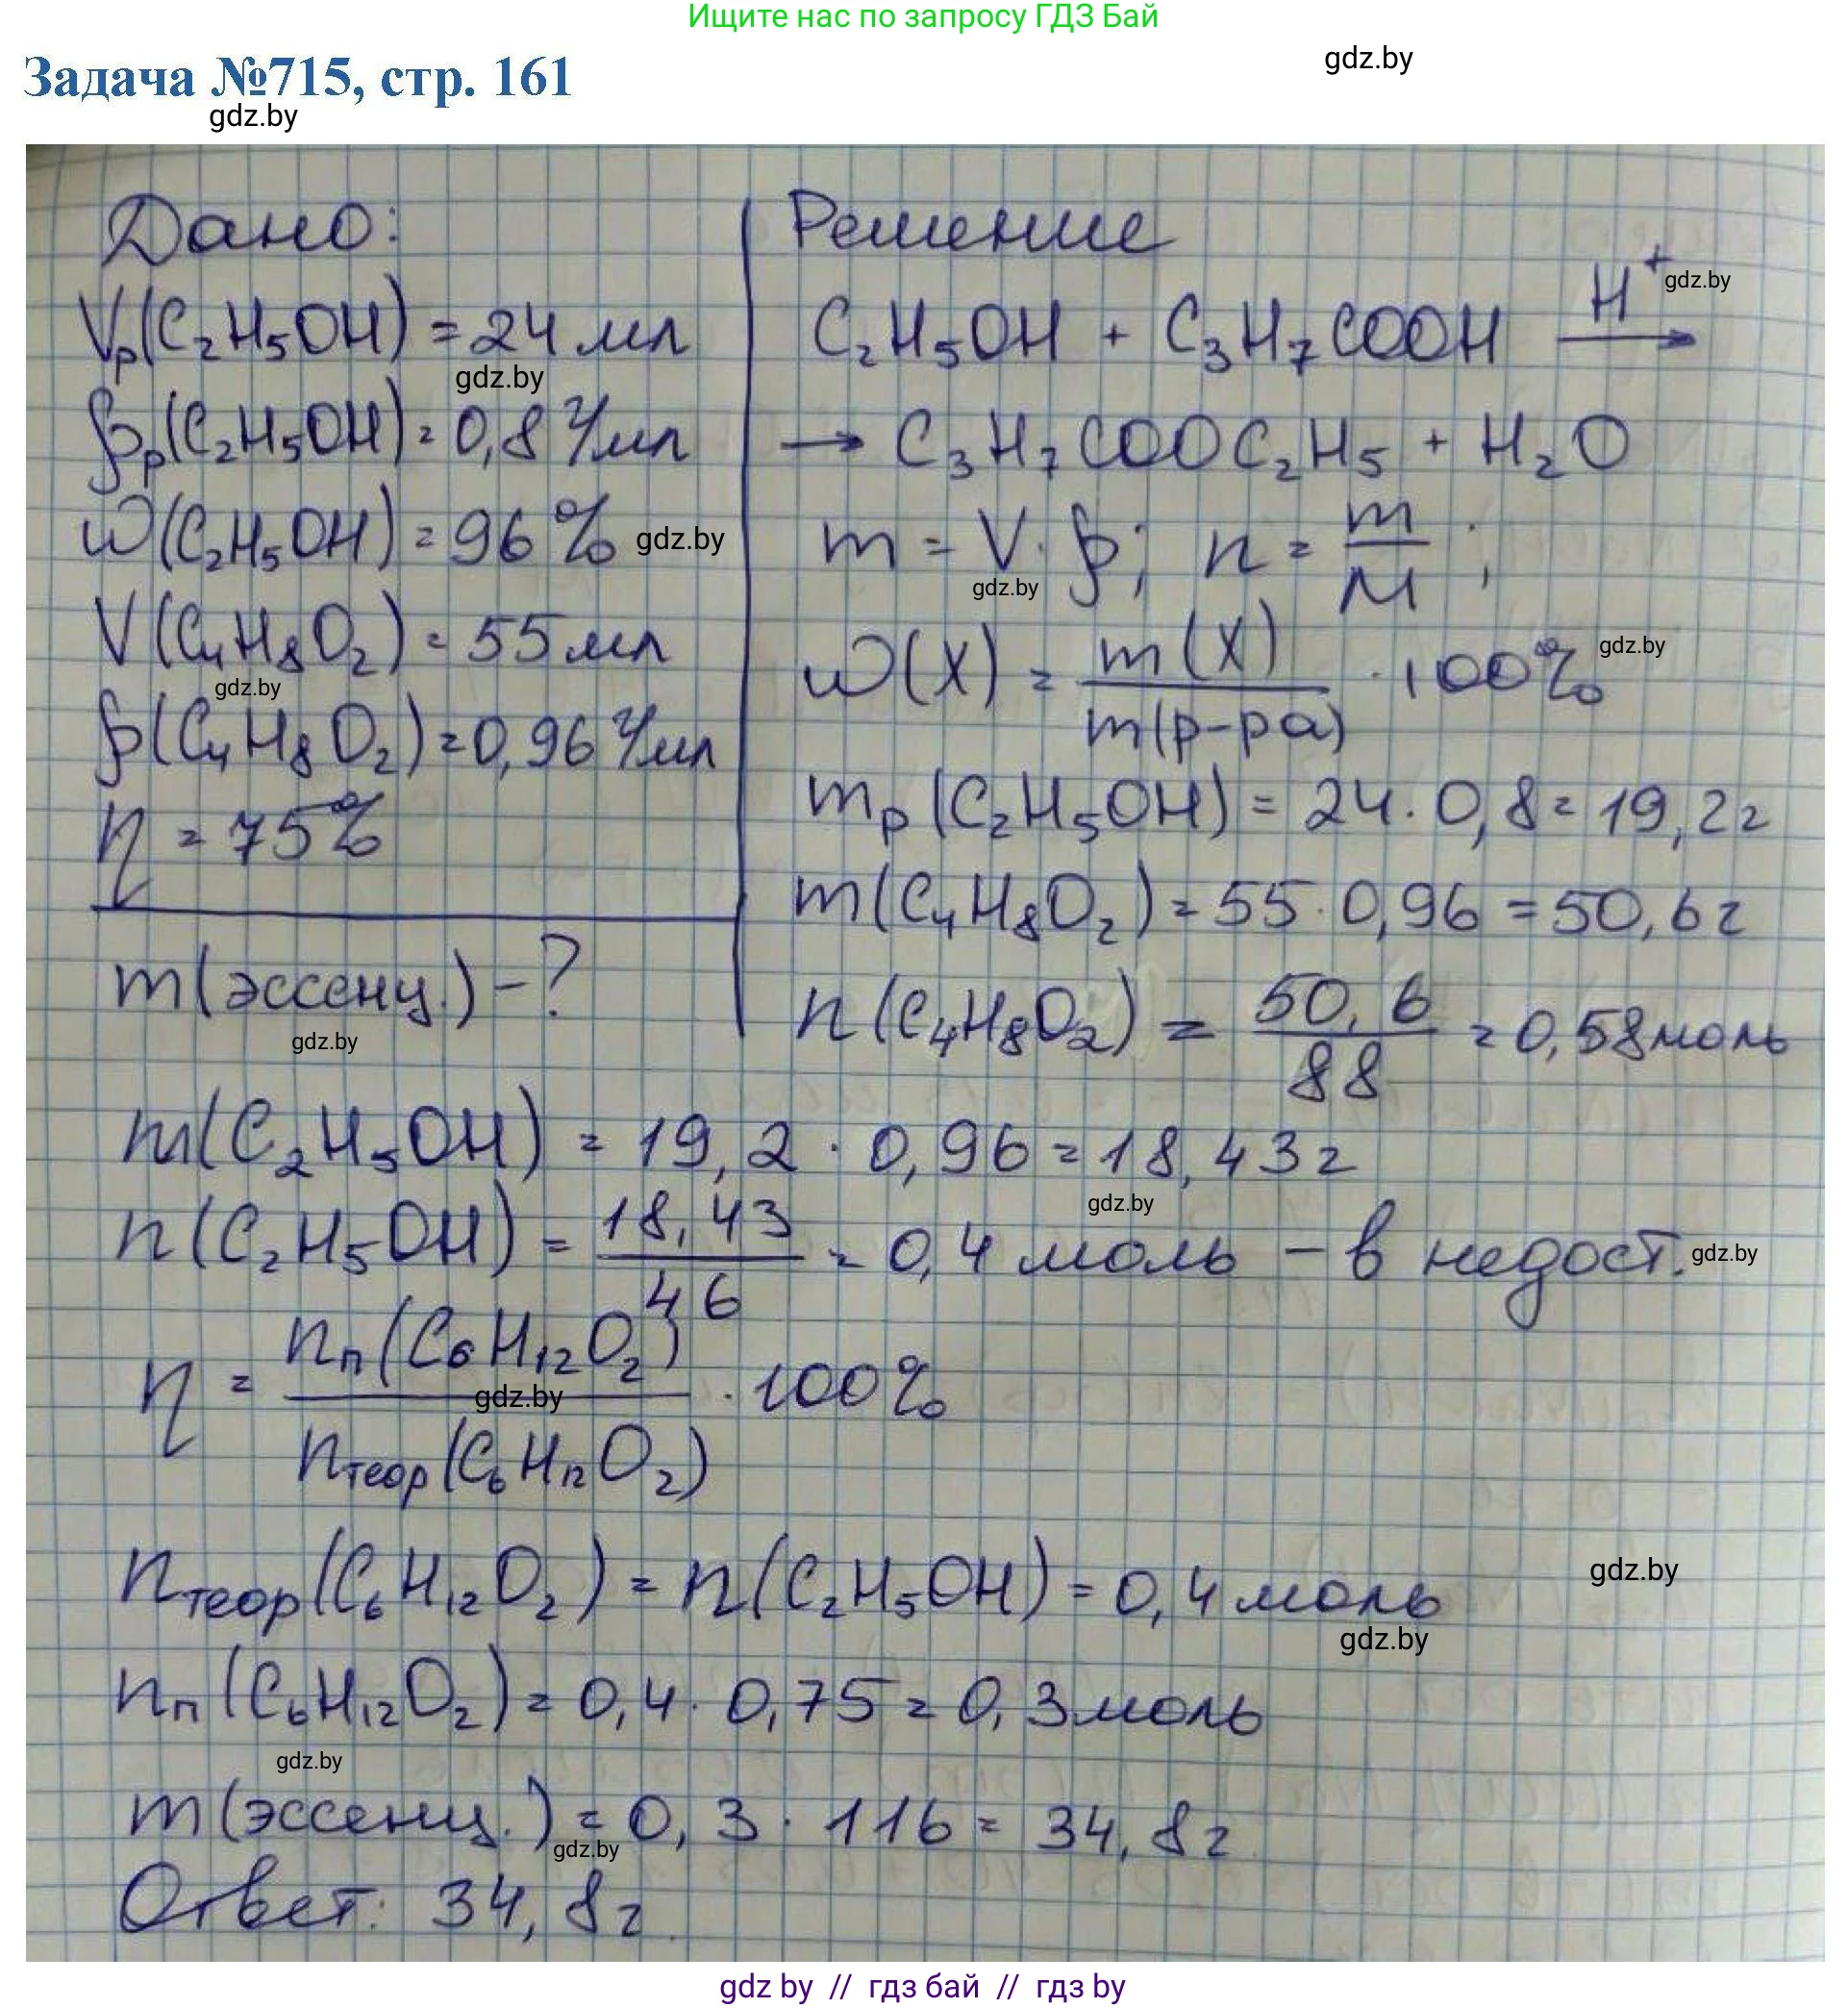 Ищите нас по запросу ГДЗ Бай
gdz.by
Задача №715, стр. 161
gdz.by
Дано:
Vр(C₂H₅OH) = 24 мл
gdz.by
ρр(C₂H₅OH) = 0,8 г/мл
ω(C₂H₅OH) = 96% gdz.by
V(C₄H₈O₂) = 55 мл
gdz.by
ρ(C₄H₈O₂) = 0,96 г/мл
η = 75%
m(эссенц.) – ?
gdz.by
Решение
C₂H₅OH + C₃H₇COOH H⁺→ gdz.by
→ C₃H₇COOC₂H₅ + H₂O
m = V · ρ; n = m/M;
gdz.by
ω(X) = m(X)/m(р-ра) · 100% gdz.by
mр(C₂H₅OH) = 24 · 0,8 = 19,2 г
m(C₄H₈O₂) = 55 · 0,96 = 50,6 г
n(C₄H₈O₂) = 50,6/88 = 0,58 моль
m(C₂H₅OH) = 19,2 · 0,96 = 18,43 г
gdz.by
n(C₂H₅OH) = 18,43/46 = 0,4 моль – в недост. gdz.by
η = nп(C₆H₁₂O₂)/nтеор(C₆H₁₂O₂) · 100%
gdz.by
nтеор(C₆H₁₂O₂) = n(C₂H₅OH) = 0,4 моль gdz.by
gdz.by
nп(C₆H₁₂O₂) = 0,4 · 0,75 = 0,3 моль
gdz.by
m(эссенц.) = 0,3 · 116 = 34,8 г
gdz.by
Ответ: 34,8 г.
gdz by // гдз бай // гдз by